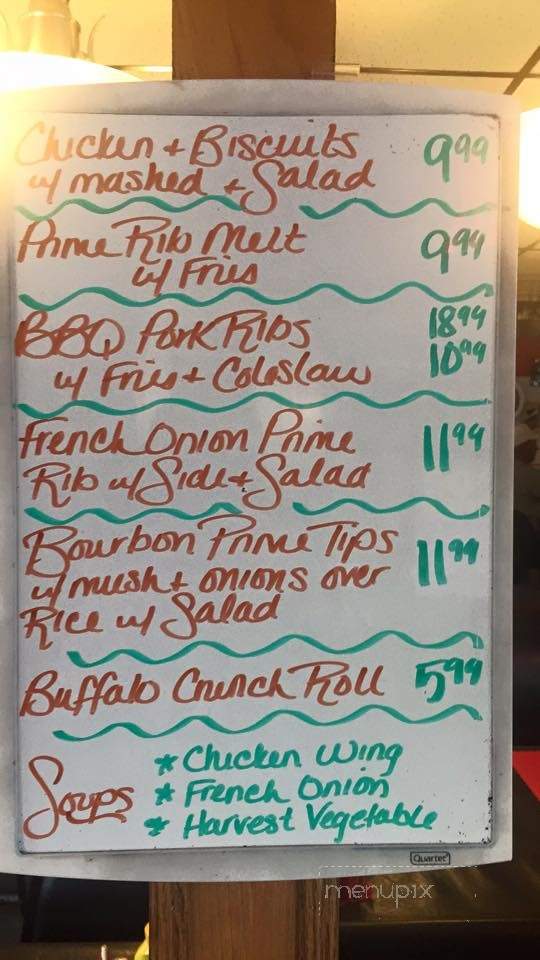 Chicken + Biscuits 9.99
w/ mashed + Salad
Prime Rib Melt 9.99
w/ Fries
BBQ Pork Ribs 18.99
w/ Fries + Coleslaw 10.99
French Onion Prime 11.99
Rib w/ Side + Salad
Bourbon Prime Tips 11.99
w/ mush + onions over
Rice w/ Salad
Buffalo Crunch Roll 5.99
Soups * Chicken Wing
* French Onion
* Harvest Vegetable
Quartet
menupix